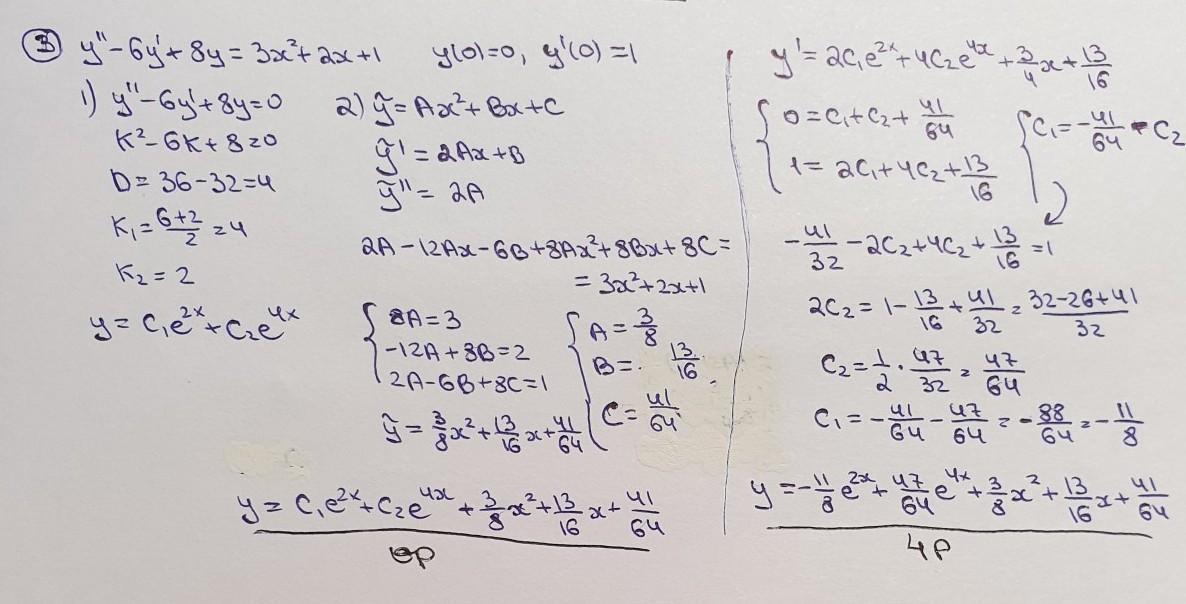 ③ y''-6y'+8y=3x²+2x+1 y(0)=0, y'(0)=1
1) y''-6y'+8y=0
K²-6K+8=0
D=36-32=4
K₁=(6+2)/2=4
K₂=2
y=C₁e^(2x)+C₂e^(4x)
2) ỹ=Ax²+Bx+C
ỹ'=2Ax+B
ỹ''=2A
2A-12Ax-6B+8Ax²+8Bx+8C=
=3x²+2x+1
{ 8A=3
-12A+8B=2
2A-6B+8C=1
{ A=3/8
B=13/16
C=41/64
ỹ=3/8x²+13/16x+41/64
y=C₁e^(2x)+C₂e^(4x)+3/8x²+13/16x+41/64
y'=2C₁e^(2x)+4C₂e^(4x)+3/4x+13/16
{ 0=C₁+C₂+41/64
1=2C₁+4C₂+13/16
{ C₁=-41/64-C₂
-41/32-2C₂+4C₂+13/16=1
2C₂=1-13/16+41/32=(32-26+41)/32
C₂=1/2·47/32=47/64
C₁=-41/64-47/64=-88/64=-11/8
y=-11/8e^(2x)+47/64e^(4x)+3/8x²+13/16x+41/64
4p